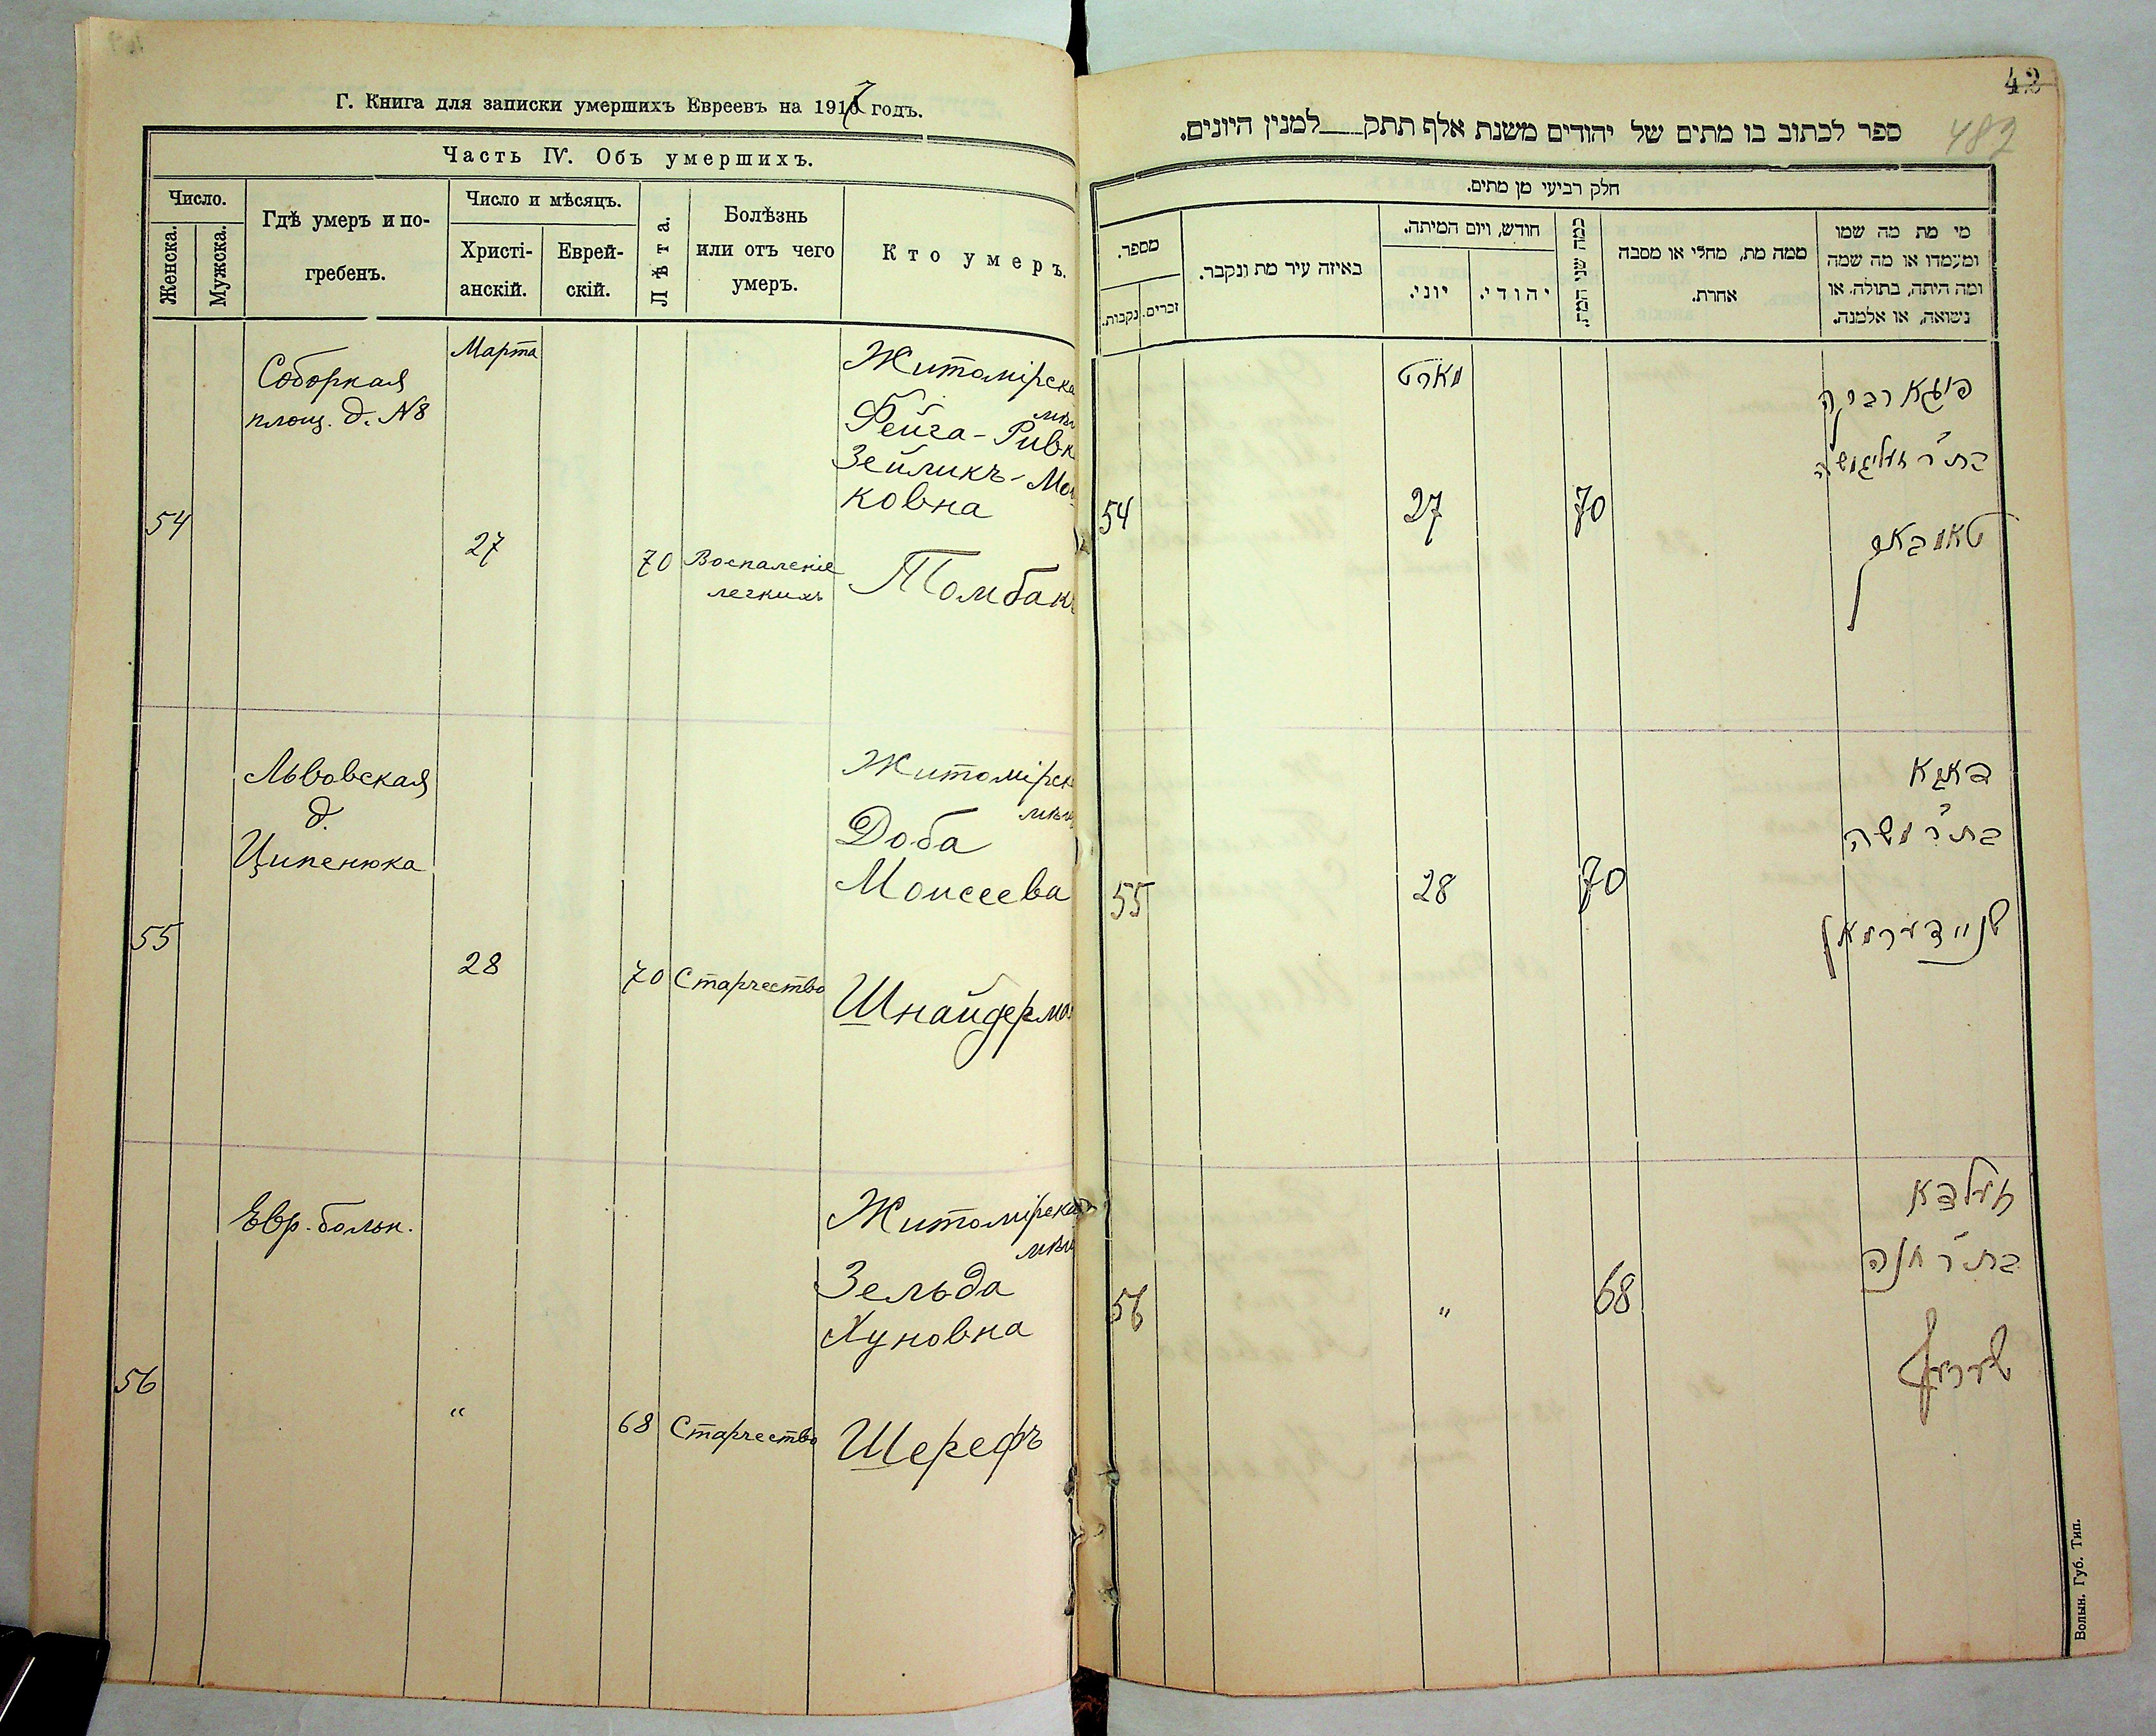 Г. Книга для записки умершихъ Евреевъ на 1917 годъ.
Часть IV. Объ умершихъ.
Число.
Женска.
Мужска.
Гдѣ умеръ и по-
гребенъ.
Число и мѣсяцъ.
Христі-
анскій.
Еврей-
скій.
Лѣта.
Болѣзнь
или отъ чего
умеръ.
Кто умеръ.
Марта
Соборная
площ. д. №8
Житомірска
мѣщ
Фейга-Ривк
Зейликъ-Мош
ковна
54
27
70
Воспаленіе
легкихъ
Томбакъ
Львовская
д.
Ципенюка
Житомірск
мѣщ
Доба
Моисеева
55
28
70
Старчество
Шнайдерма
Евр. больн.
Житомірская
мѣщ
Зельда
Хуновна
56
"
68
Старчество
Шерефъ
42
482
ספר לכתוב בו מתים של יהודים משנת אלף תתק___למנין היונים.
חלק רביעי מן מתים.
מספר.
נקבות.
זכרים.
באיזה עיר מת ונקבר.
חודש, ויום המיתה.
יוני.
יהודי.
כמה שני המת.
ממה מת, מחלי או מסבה
אחרת.
מי מת מה שמו
ומעמדו או מה שמה
ומה היתה, בתולה, או
נשואה, או אלמנה.
מארט
פייגא רבקה
בת ר' זעליג משה
54
27
70
טאמבאק
דאבא
בת ר' משה
55
28
70
שניידערמאן
זעלדא
בת ר' חנה
56
"
68
שערעף
Волын. Губ. Тип.